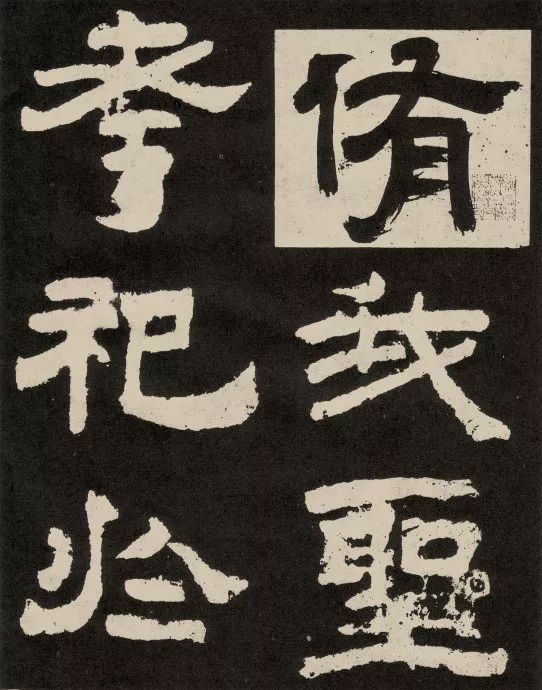 侑我聖
孝祀於